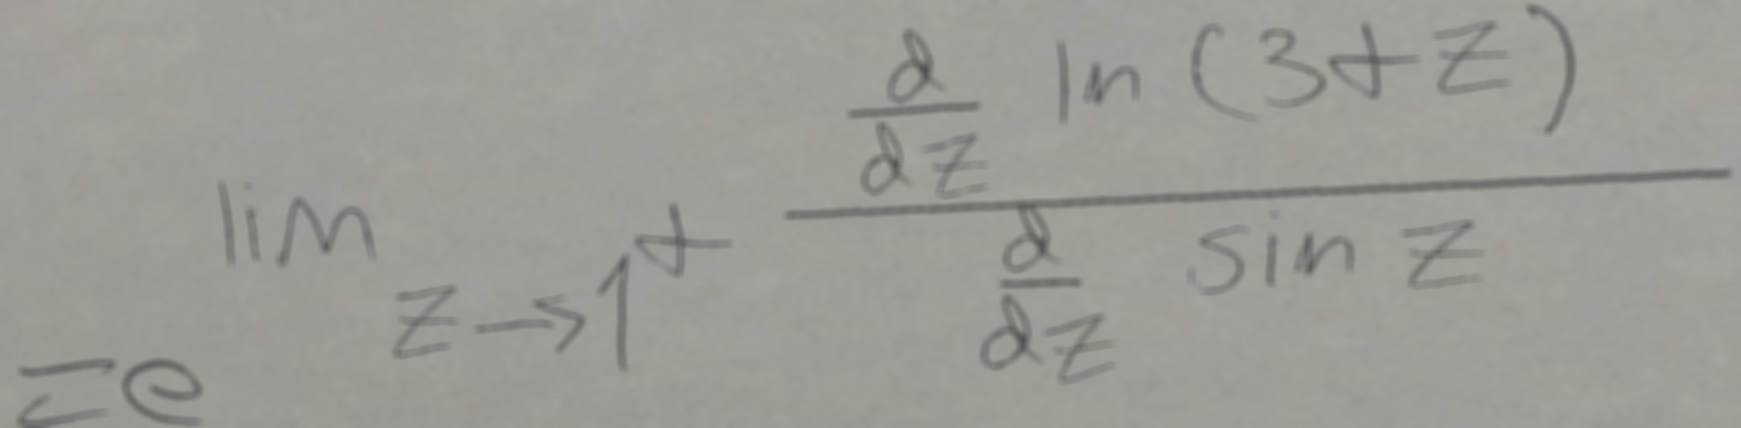 $= e^{\lim_{z \to 1^+} \frac{\frac{d}{dz} \ln(3+z)}{\frac{d}{dz} \sin z}}$